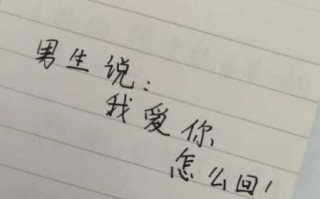 男生说：
我爱你
怎么回！